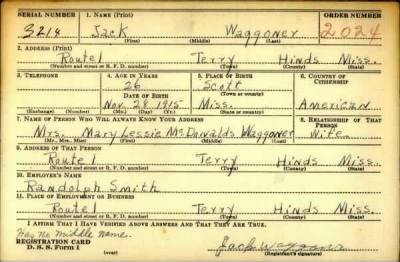 SERIAL NUMBER 1. NAME (Print) ORDER NUMBER
3214 Jack Waggoner 2024
(First) (Middle) (Last)
2. ADDRESS (Print)
Route 1 Terry Hinds Miss.
(Number and street or R. F. D. number) (Town) (County) (State)
3. TELEPHONE 4. AGE IN YEARS 5. PLACE OF BIRTH 6. COUNTRY OF CITIZENSHIP
26 Scott
DATE OF BIRTH (Town or county)
Nov. 28 1915 Miss. American
(Exchange) (Number) (Mo.) (Day) (Yr.) (State or country)
7. NAME OF PERSON WHO WILL ALWAYS KNOW YOUR ADDRESS 8. RELATIONSHIP OF THAT PERSON
Mrs. Mary Lessie McDanalds Waggoner Wife
(Mr., Mrs., Miss) (First) (Middle) (Last)
9. ADDRESS OF THAT PERSON
Route 1 Terry Hinds Miss.
(Number and street or R. F. D. number) (Town) (County) (State)
10. EMPLOYER'S NAME
Randolph Smith
11. PLACE OF EMPLOYMENT OR BUSINESS
Route 1 Terry Hinds Miss.
(Number and street or R. F. D. number) (Town) (County) (State)
I AFFIRM THAT I HAVE VERIFIED ABOVE ANSWERS AND THAT THEY ARE TRUE.
Has no middle name.
REGISTRATION CARD Jack Waggoner
D. S. S. Form 1 (over) (Registrant's signature)